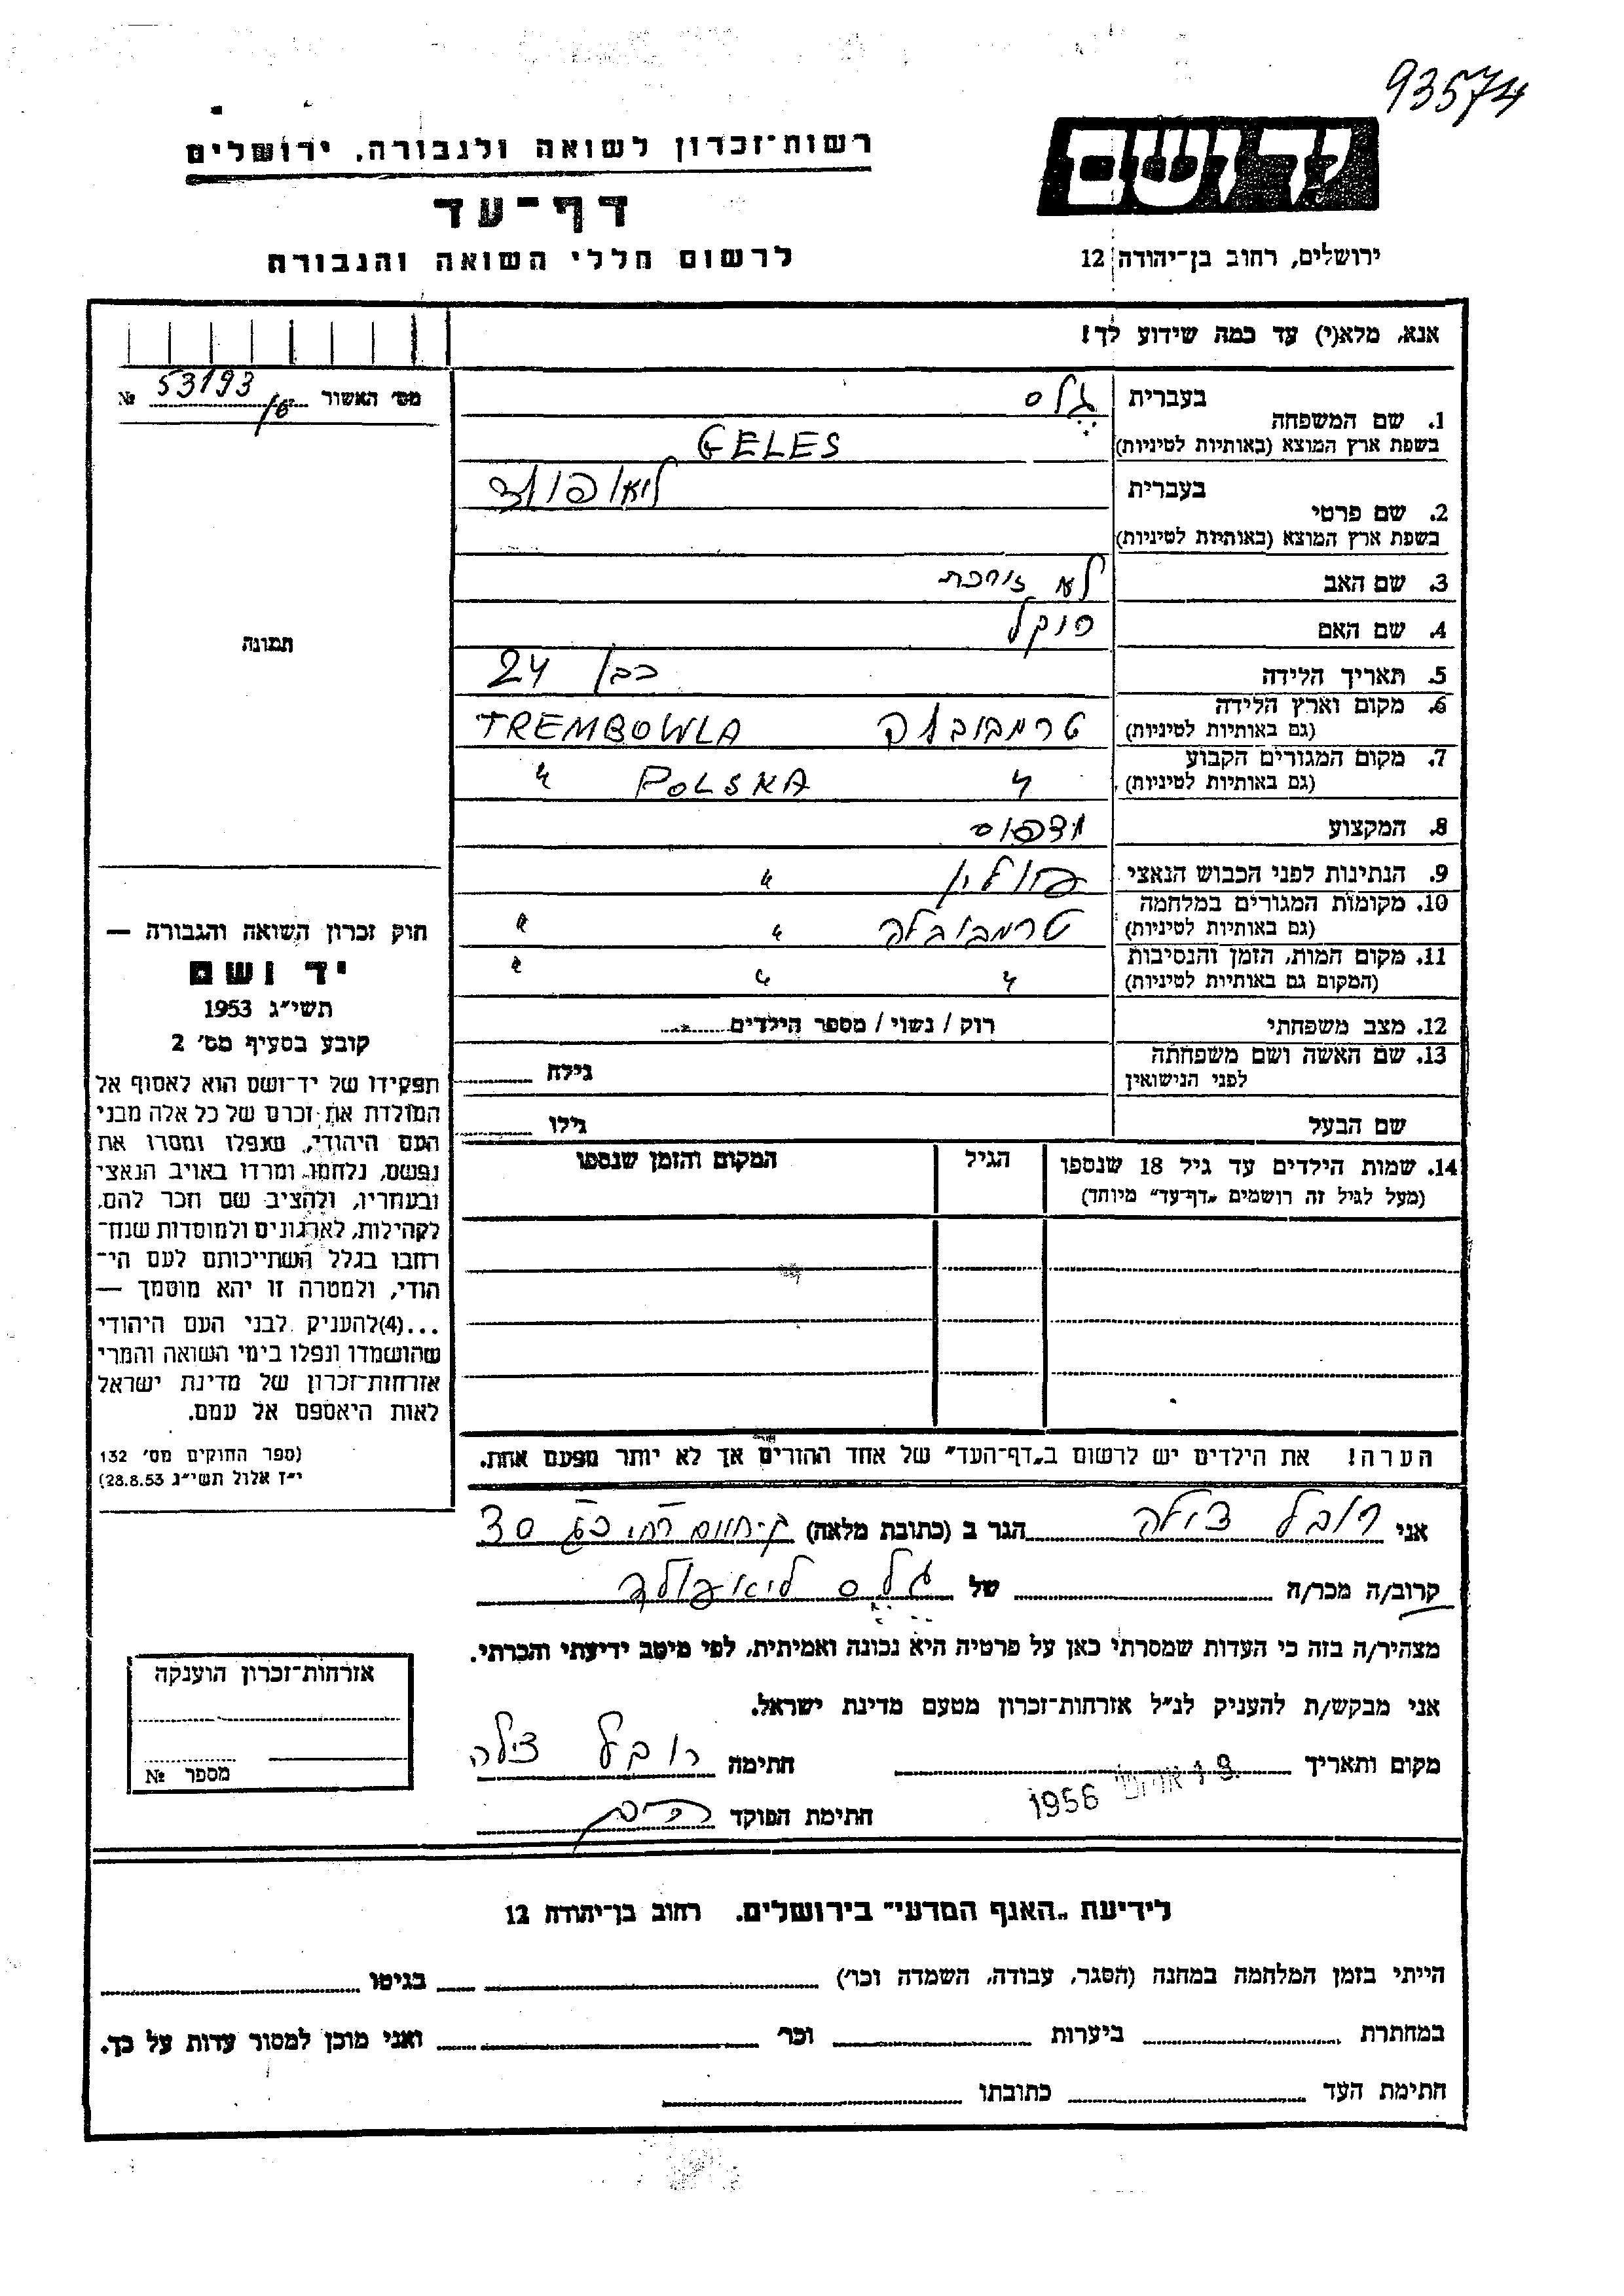 93574
רשות־זכרון לשואה ולגבורה, ירושלים
יד ושם
דף־עד
לרשום חללי השואה והגבורה
ירושלים, רחוב בן־יהודה 12
אנא, מלא(י) עד כמה שידוע לך!
מס׳ האשור 53193 №
1. שם המשפחה
בעברית גלס
בשפת ארץ המוצא (באותיות לטיניות) GELES
2. שם פרטי
בעברית ליאופולד
בשפת ארץ המוצא (באותיות לטיניות)
3. שם האב לא זוכרת
4. שם האם
5. תאריך הלידה כבן 24
6. מקום וארץ הלידה
(גם באותיות לטיניות) טרמבובלה TREMBOWLA
7. מקום המגורים הקבוע
(גם באותיות לטיניות) " POLSKA "
8. המקצוע
9. הנתינות לפני הכבוש הנאצי פולין "
10. מקומות המגורים במלחמה
(גם באותיות לטיניות) טרמבובלה " "
11. מקום המות, הזמן והנסיבות
(המקום גם באותיות לטיניות) " " "
12. מצב משפחתי רוק / נשוי / מספר הילדים
13. שם האשה ושם משפחתה
לפני הנישואין גילה
שם הבעל גילו
14. שמות הילדים עד גיל 18 שנספו הגיל המקום והזמן שנספו
(מעל לגיל זה רושמים „דף־עד״ מיוחד)
הערה! את הילדים יש לרשום ב„דף־העד״ של אחד ההורים אך לא יותר מפעם אחת.
תמונה
חוק זכרון השואה והגבורה —
יד ושם
תשי״ג 1953
קובע בסעיף מס׳ 2
תפקידו של יד־ושם הוא לאסוף אל
המולדת את זכרם של כל אלה מבני
העם היהודי, שנפלו ומסרו את
נפשם, נלחמו ומרדו באויב הנאצי
ובעוזריו, ולהציב שם וזכר להם,
לקהילות, לארגונים ולמוסדות שנח־
רבו בגלל השתייכותם לעם הי־
הודי, ולמטרה זו יהא מוסמך —
...(4) להעניק לבני העם היהודי
שהושמדו ונפלו בימי השואה והמרי
אזרחות־זכרון של מדינת ישראל
לאות היאספם אל עמם.
(ספר החוקים מס׳ 132
י״ז אלול תשי״ג 28.8.53)
אני רובל צילה הגר ב (כתובת מלאה) 30
קרוב/ה מכר/ה של גלס ליאופולד
מצהיר/ה בזה כי העדות שמסרתי כאן על פרטיה היא נכונה ואמיתית, לפי מיטב ידיעתי והכרתי.
אני מבקש/ת להעניק לנ״ל אזרחות־זכרון מטעם מדינת ישראל.
מקום ותאריך 1956 חתימה רובל צילה
חתימת הפוקד
אזרחות־זכרון הוענקה
מספר №
לידיעת „האגף המדעי״ בירושלים. רחוב בן־יהודה 12
הייתי בזמן המלחמה במחנה (הסגר, עבודה, השמדה וכו׳) בגיטו
במחתרת ביערות וכו׳ ואני מוכן למסור עדות על כך.
חתימת העד כתובתו